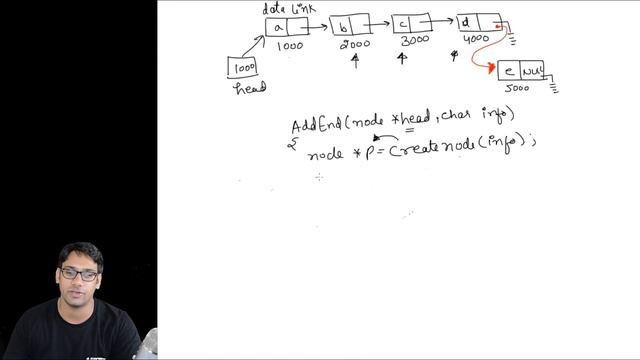 data link
a b c d
1000 2000 3000 4000
1000
head
e NULL
5000
AddEnd(node *head, char info)
{ node *P = Createnode(info);